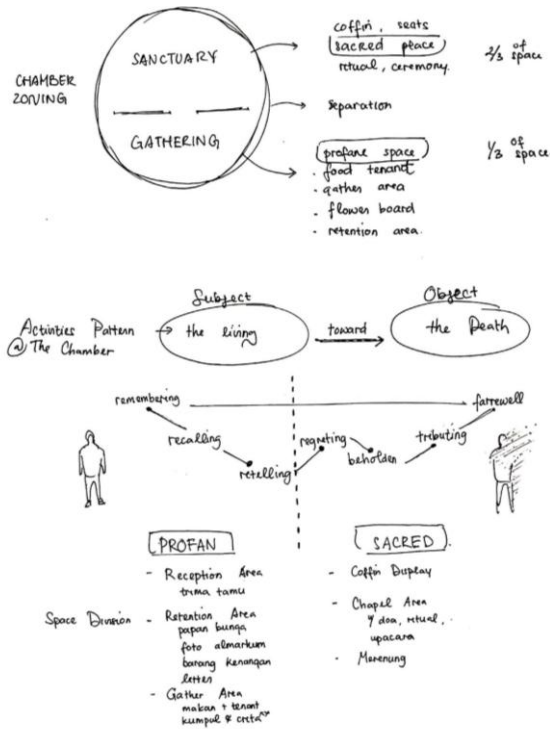 CHAMBER
ZONING
SANCTUARY
GATHERING
coffin, seats
sacred place
ritual, ceremony.
2/3 of
space
Separation
profane space
1/3 of
space
• food tenant
• gather area
• flower board
- retention area.
Activities Pattern
@ The Chamber
Subject
the living
toward
Object
the Death
remembering
farewell
recalling
retelling
regreting
beholden
tributing
PROFAN
- Reception Area
trima tamu
Space Division
- Retention Area
papan bunga
foto almarhum
barang kenangan
letter
- Gather Area
makan + tenant
kumpul &
SACRED
- Coffin Display
- Chapel Area
doa, ritual,
upacara
- Merenung